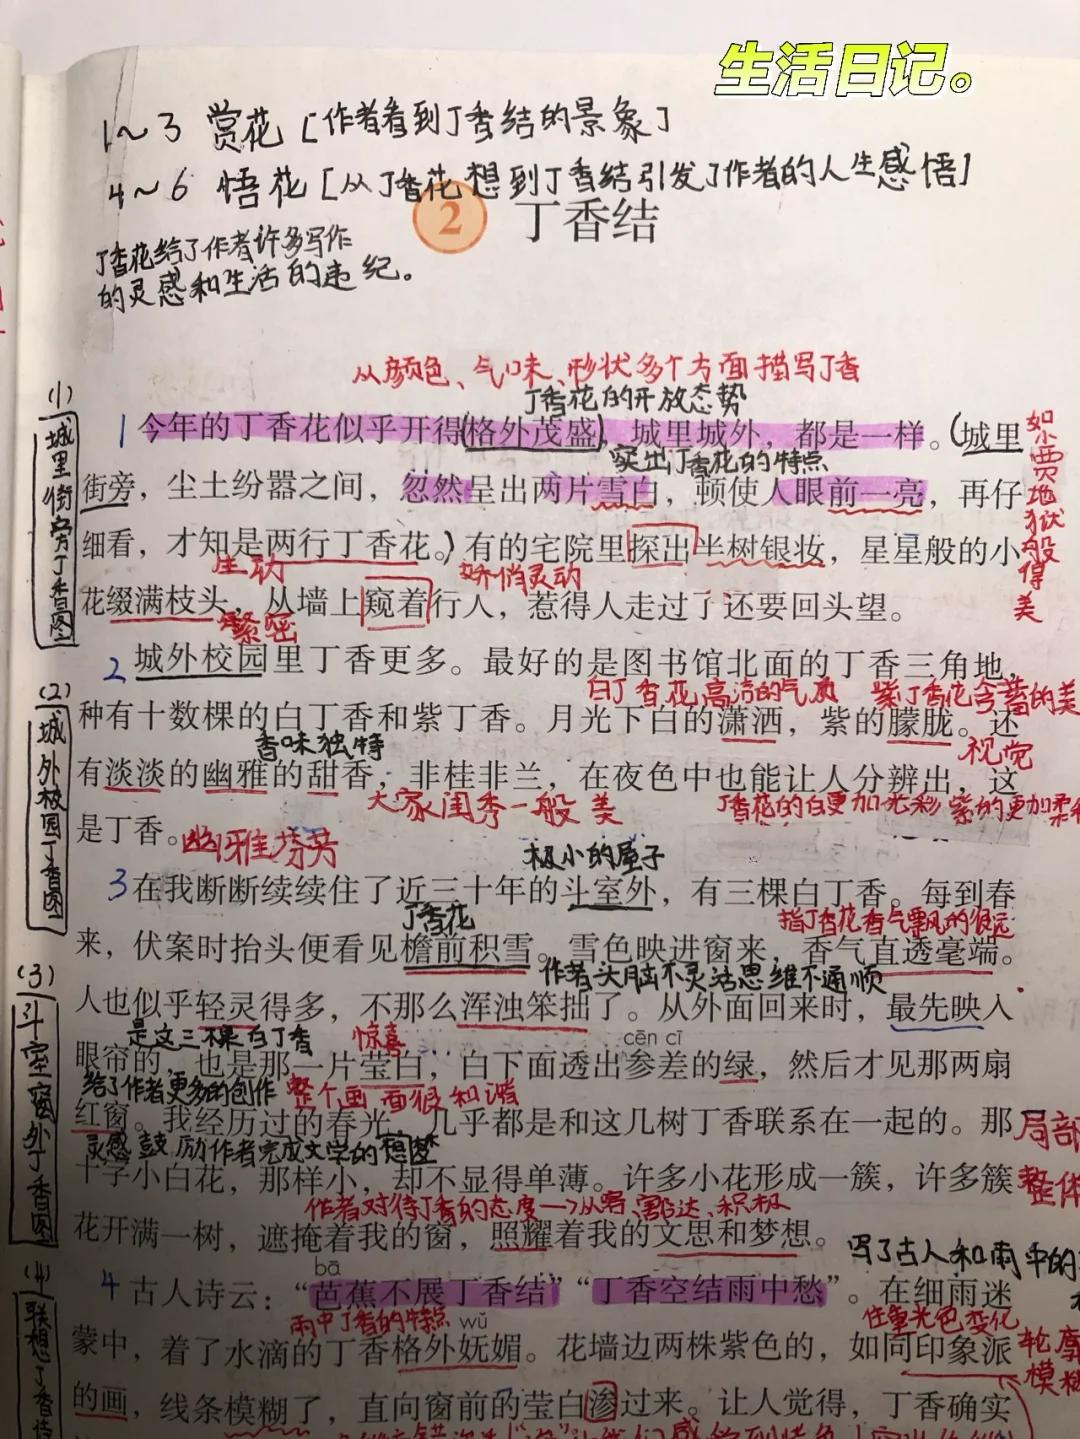 生活日记。
1~3 赏花[作者看到丁香结的景象]
4~6 悟花[从丁香花想到丁香结引发了作者的人生感悟]
2 丁香结
丁香花给了作者许多写作
的灵感和生活的违纪。
从颜色、气味、形状多个方面描写丁香
丁香花的开放态势
(1)城里街旁丁香图
1今年的丁香花似乎开得(格外茂盛),城里城外,都是一样。(城里
突出丁香花的特点
街旁,尘土纷嚣之间,忽然呈出两片雪白,顿使人眼前一亮,再仔
细看,才知是两行丁香花。)有的宅院里探出半树银妆,星星般的小
生动 娇俏灵动
花缀满枝头,从墙上窥着行人,惹得人走过了还要回头望。
繁密
般得美
(2)城外校园丁香图
2城外校园里丁香更多。最好的是图书馆北面的丁香三角地,
白丁香花高洁的气质 紫丁香花含蓄的美
种有十数棵的白丁香和紫丁香。月光下白的潇洒,紫的朦胧。还
香味独特 视觉
有淡淡的幽雅的甜香,非桂非兰,在夜色中也能让人分辨出,这
大家闺秀一般美 丁香花的白更加光彩 紫的更加柔和
是丁香。幽雅芬芳
极小的屋子
(3)斗室窗外丁香图
3在我断断续续住了近三十年的斗室外,有三棵白丁香。每到春
丁香花 指丁香花香气飘的很远
来,伏案时抬头便看见檐前积雪。雪色映进窗来,香气直透毫端。
作者头脑不灵活思维不通顺
人也似乎轻灵得多,不那么浑浊笨拙了。从外面回来时,最先映入
是这三棵白丁香 惊喜 cēn cī
眼帘的,也是那一片莹白,白下面透出参差的绿,然后才见那两扇
给了作者更多的创作 整个画面很和谐
红窗。我经历过的春光,几乎都是和这几树丁香联系在一起的。那 局部
灵感鼓励作者完成文学的想梦
十字小白花,那样小,却不显得单薄。许多小花形成一簇,许多簇 整体
作者对待丁香的态度→从容、豁达、积极
花开满一树,遮掩着我的窗,照耀着我的文思和梦想。
写了古人和雨中的
bā
(4)联想丁香诗
4古人诗云:“芭蕉不展丁香结”“丁香空结雨中愁”。在细雨迷
雨中丁香的特点 wǔ 住重光色变化
蒙中,着了水滴的丁香格外妩媚。花墙边两株紫色的,如同印象派 轮廓
模糊
的画,线条模糊了,直向窗前的莹白渗过来。让人觉得,丁香确实